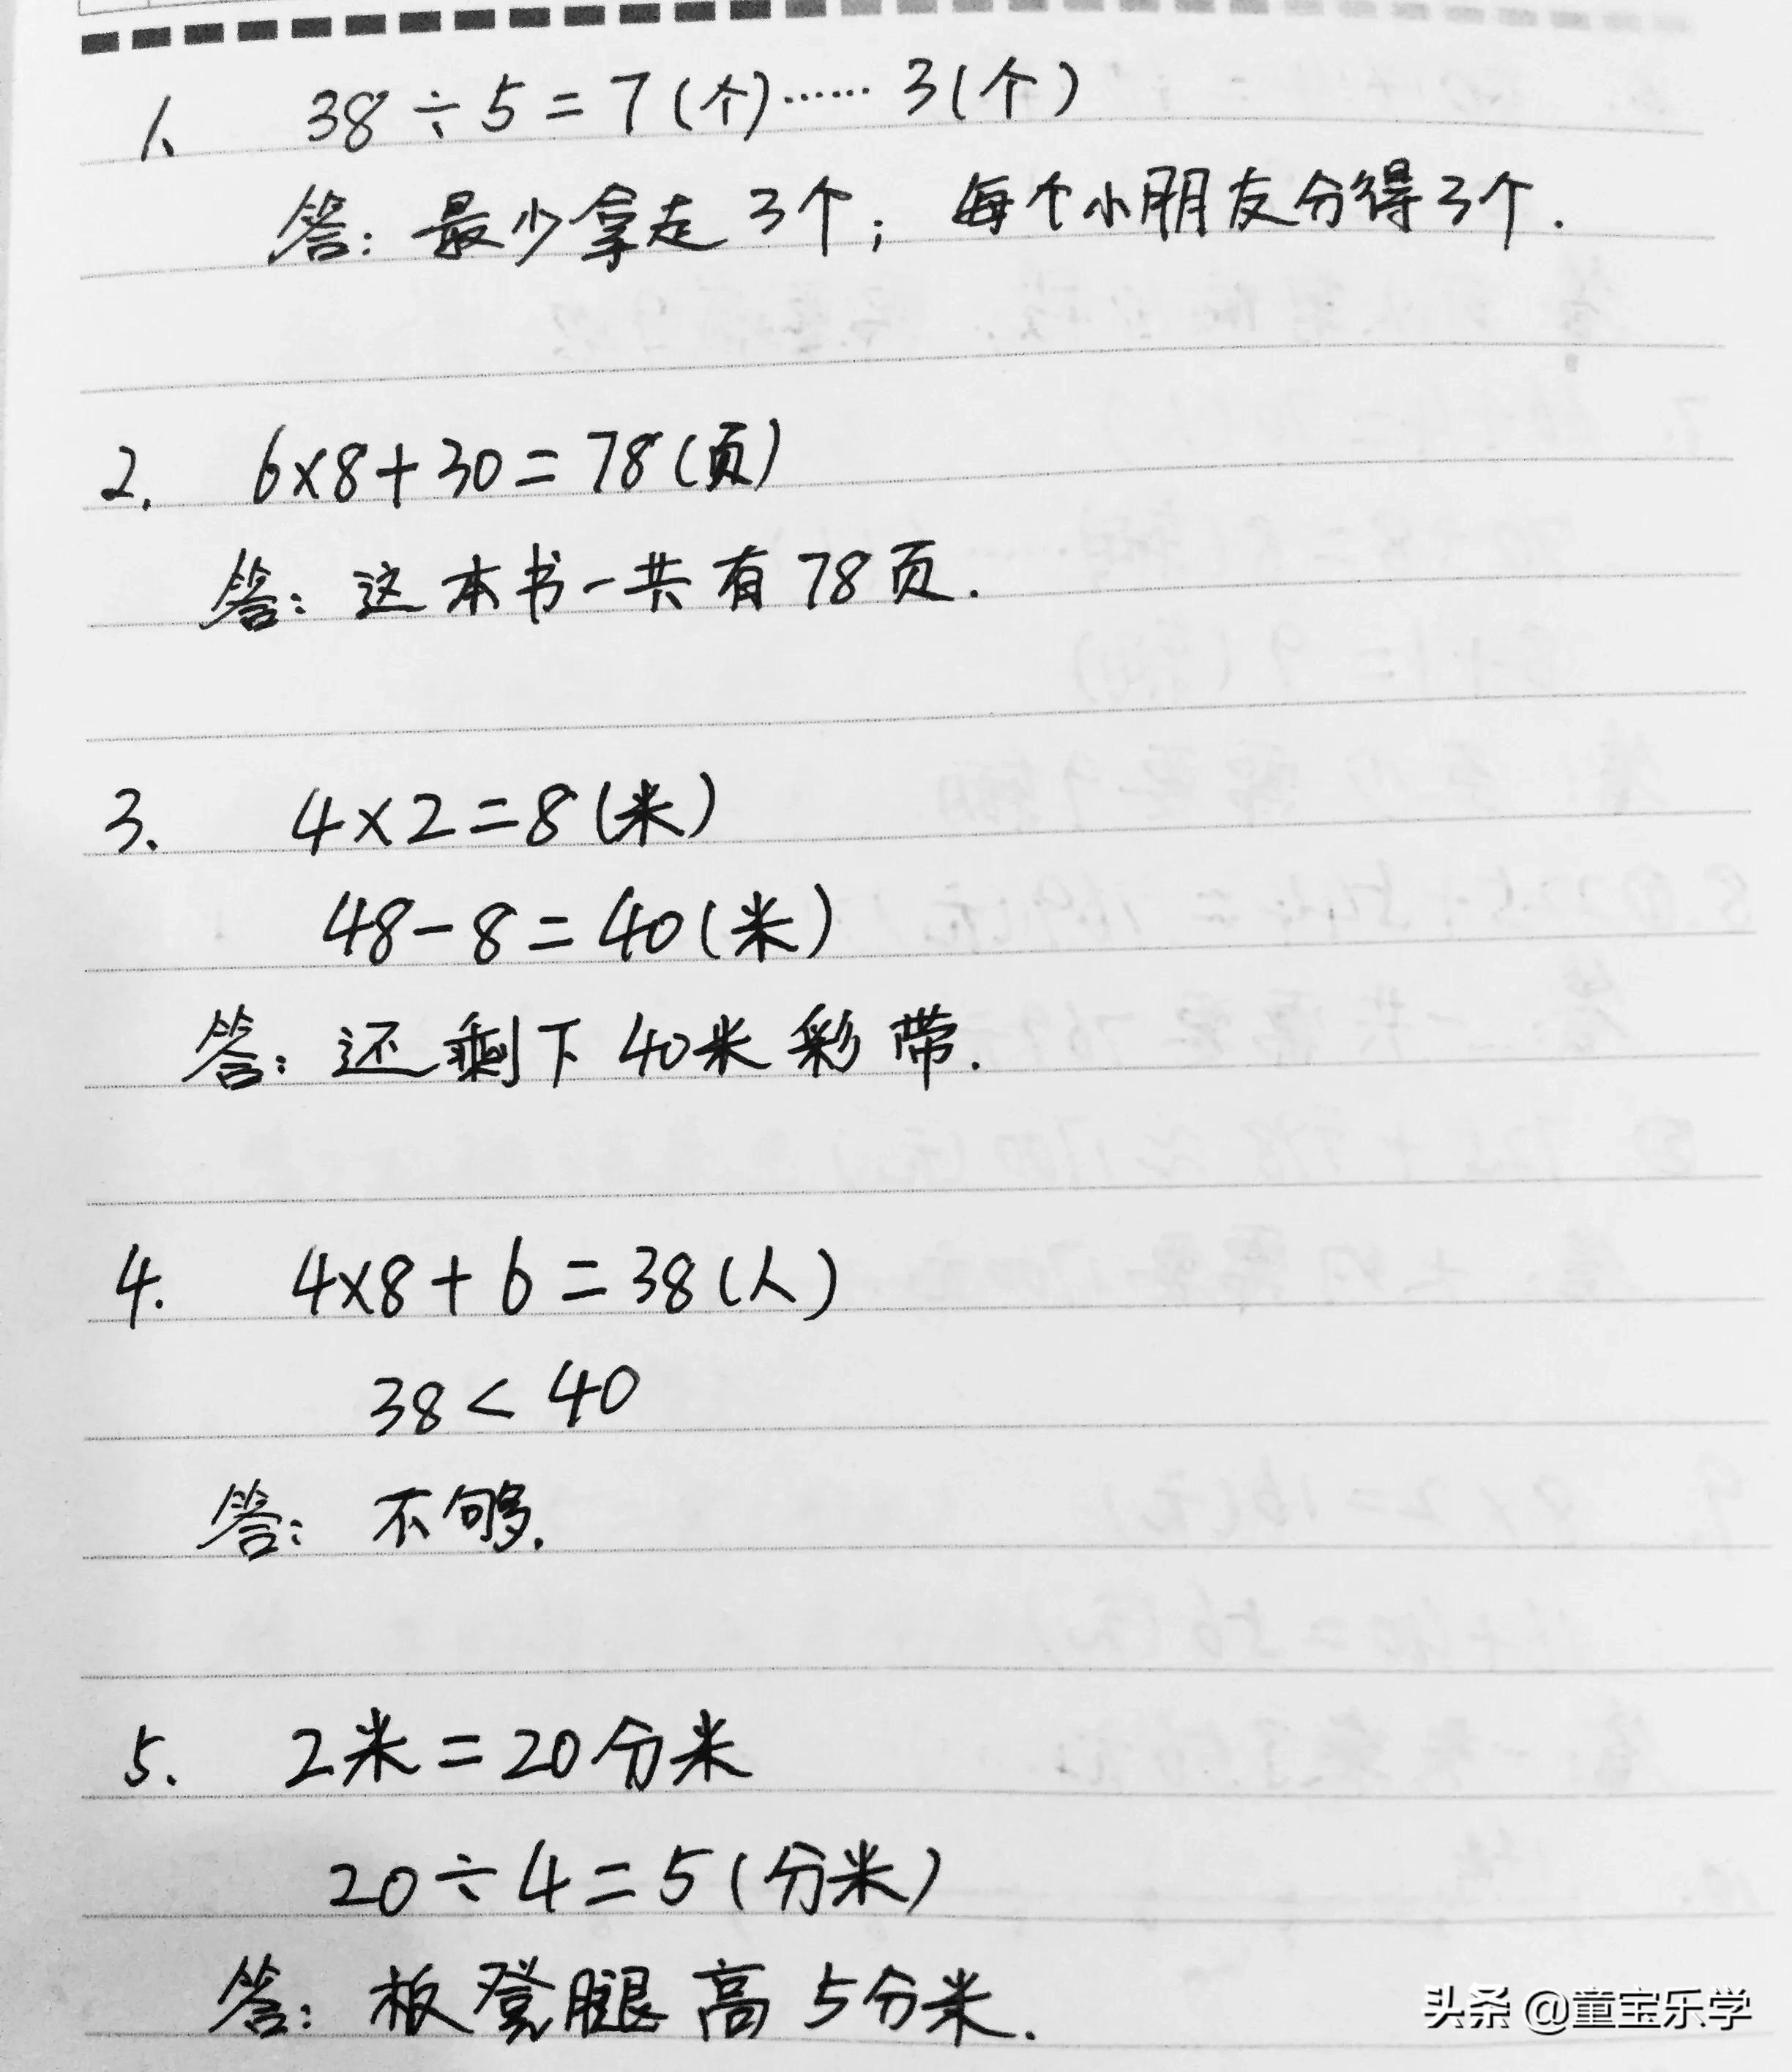 1、 38÷5=7(个)……3(个)
答：最少拿走3个；每个小朋友分得3个.
2. 6×8+30=78(页)
答：这本书一共有78页.
3、 4×2=8(米)
48-8=40(米)
答：还剩下40米彩带.
4. 4×8+6=38(人)
38<40
答：不够.
5. 2米=20分米
20÷4=5(分米)
答：板凳腿高5分米.
头条 @童宝乐学